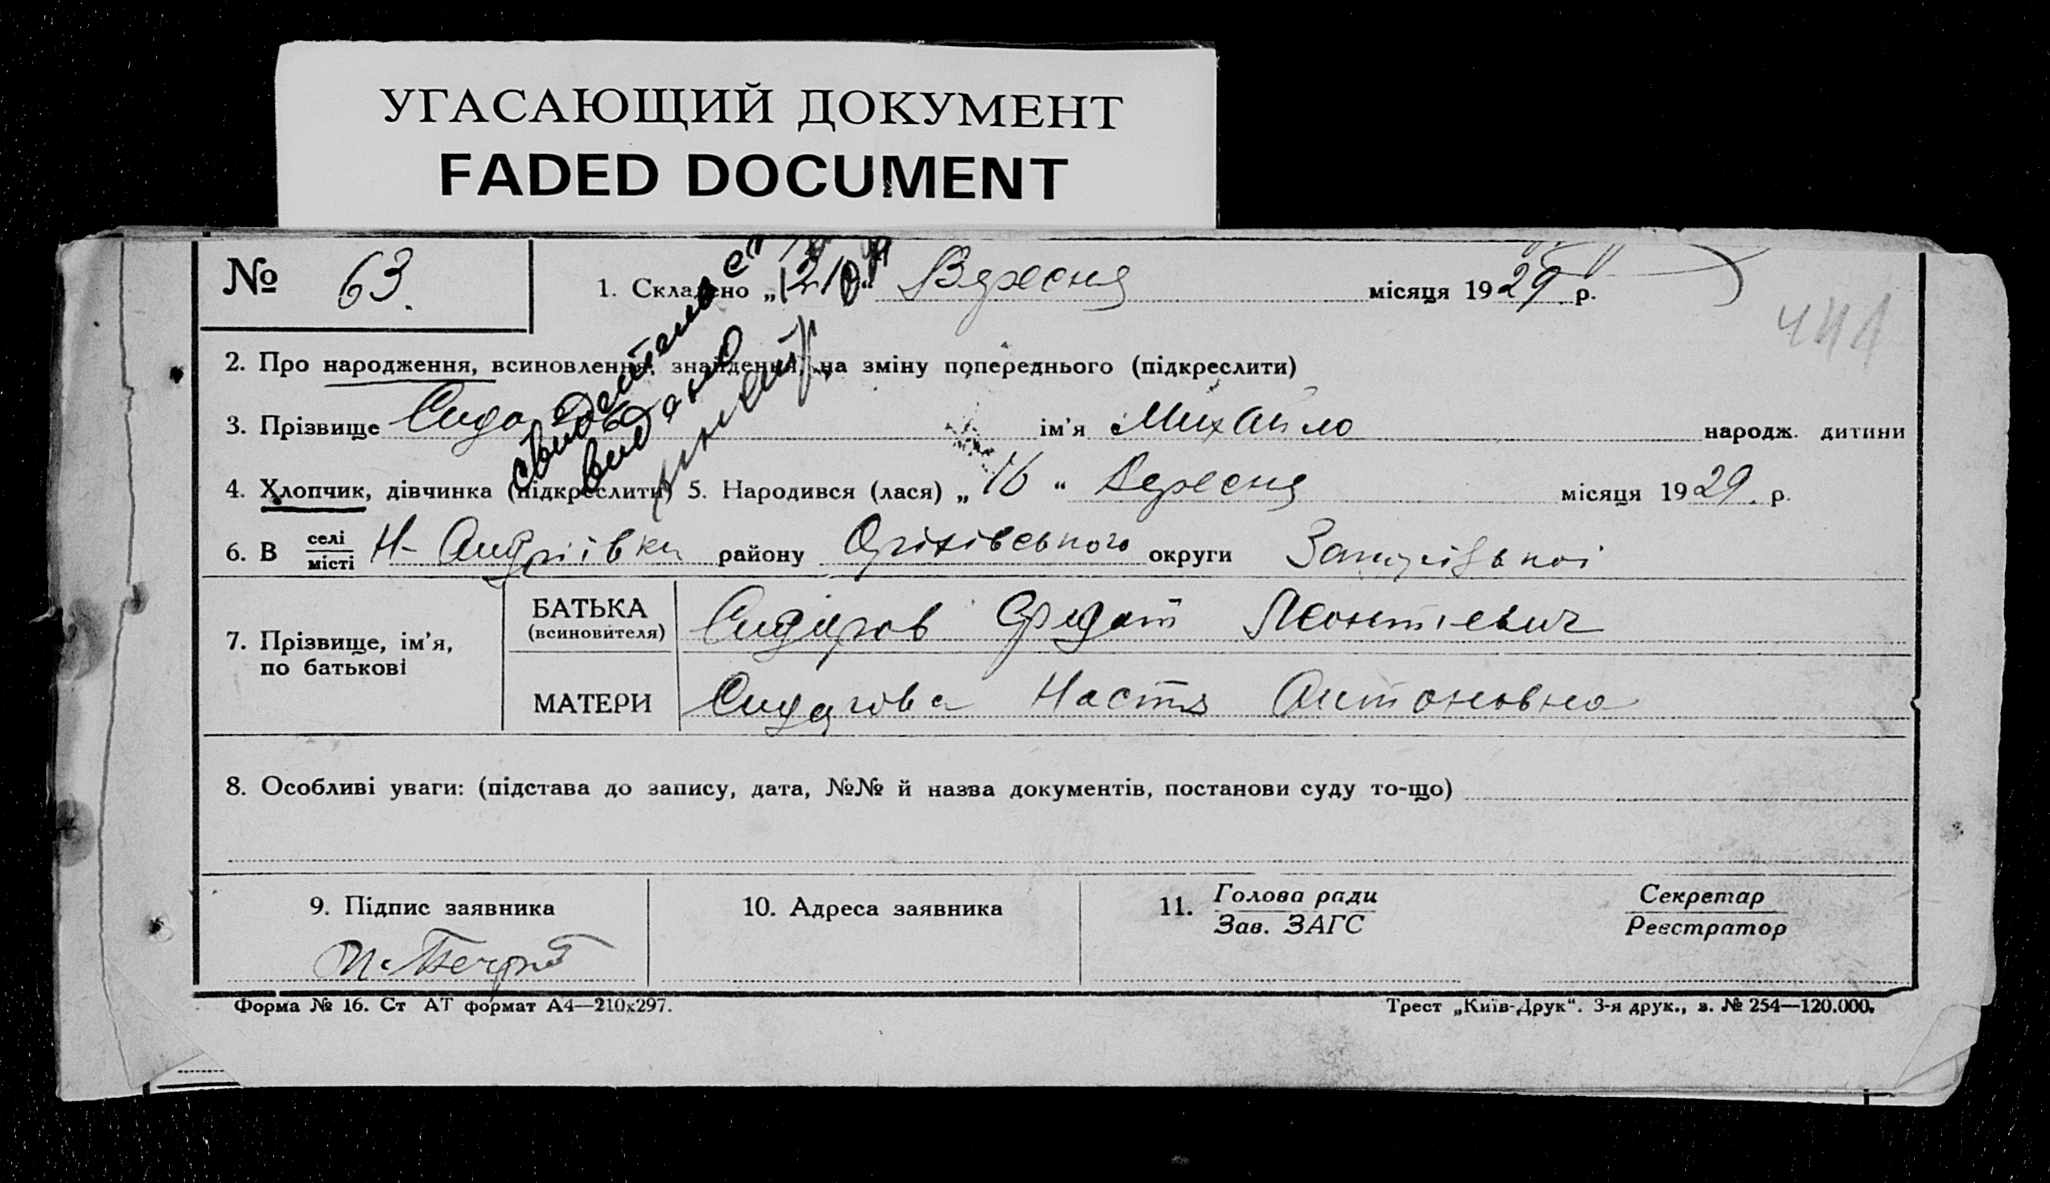 УГАСАЮЩИЙ ДОКУМЕНТ
FADED DOCUMENT
№ 63.
1. Складено „ “ Вересня місяця 1929 р.
2. Про народження, всиновлення, знайдення, на зміну попереднього (підкреслити)
3. Прізвище ім'я Михайло народж. дитини
4. Хлопчик, дівчинка (підкреслити) 5. Народився (лася) „16“ Вересня місяця 1929 р.
6. В селі
місті Н-Андріівки району Оріхівського округи Запорізькоі
7. Прізвище, ім'я,
по батькові
БАТЬКА
(всиновителя)
Федот Леонтіевич
МАТЕРИ
Настя Антоновна
8. Особливі уваги: (підстава до запису, дата, №№ й назва документів, постанови суду то-що)
9. Підпис заявника
10. Адреса заявника
11. Голова ради
Зав. ЗАГС
Секретар
Реєстратор
Форма № 16. Ст АТ формат А4—210х297.
Трест „Київ-Друк“. 3-я друк., з. № 254—120.000.